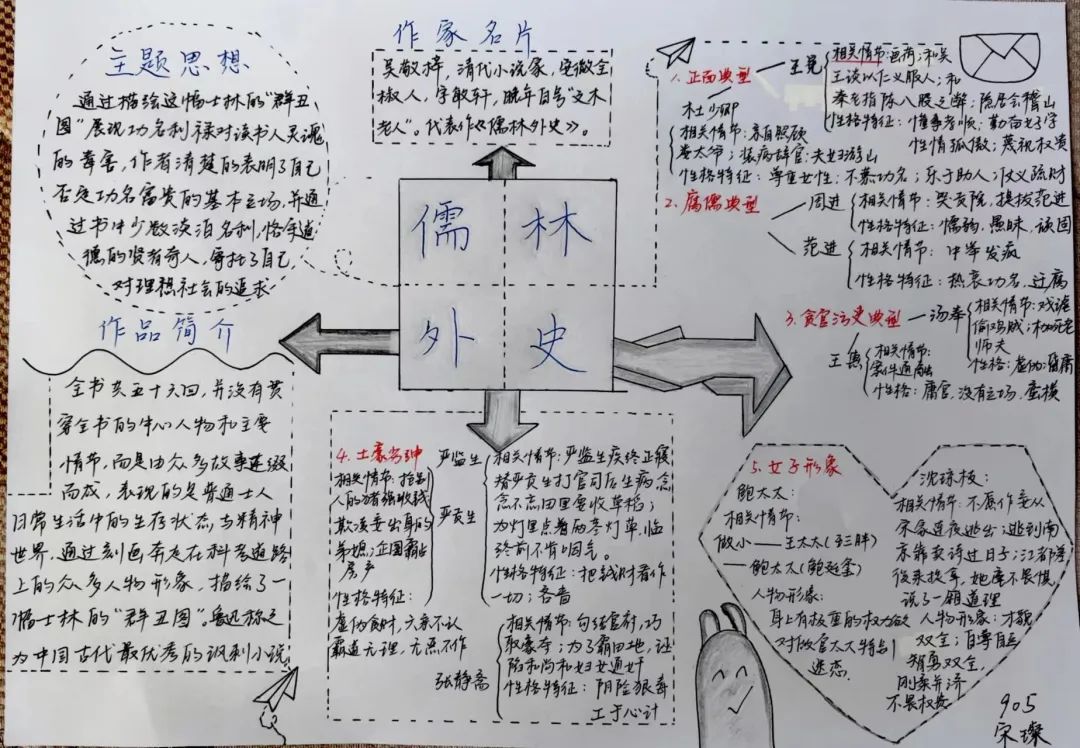 主题思想
通过描绘这幅士林的“群丑
图”展现功名利禄对读书人灵魂
的毒害，作者清楚的表明了自己
否定功名富贵的基本立场，并通
过书中少数淡泊名利，恪守道
德的贤者奇人，寄托了自己
对理想社会的追求
作家名片
吴敬梓，清代小说家，安徽全
椒人，字敏轩，晚年自号“文木
老人”。代表作《儒林外史》。
儒林
外史
作品简介
全书共五十六回，并没有贯
穿全书的中心人物和主要
情节，而是由众多故事连缀
而成，表现的是普通士人
日常生活中的生存状态与精神
世界，通过刻画奔走在科考道路
上的众多人物形象，描绘了一
幅士林的“群丑图”。鲁迅称之
为中国古代最优秀的讽刺小说
1. 正面典型
王冕
相关情节：画荷；和吴
王谈以仁义服人；和
秦老指陈八股之弊；隐居会稽山
性格特征：懂事孝顺；勤奋好学
性情孤傲；蔑视权贵
杜少卿
相关情节：亲自照顾
娄太爷；装病辞官；夫妇游山
性格特征：尊重女性；不慕功名；乐于助人；仗义疏财
2. 腐儒典型
周进
相关情节：哭贡院，提拔范进
性格特征：懦弱，愚昧，顽固
范进
相关情节：中举发疯
性格特征：热衷功名，迂腐
3. 贪官污吏典型
汤奉
相关情节：戏谑
偷鸡贼；枷死老
师夫
性格：虚伪；
王惠
相关情节：
案件通融
性格：腐官，没有立场，蛮横
4. 土豪劣绅
严监生
相关情节：严监生疾终正寝
替严贡生打官司后生病，念
念不忘田里要收早稻；
为灯里点着两茎灯草，临
终前不肯咽气。
性格特征：把钱财看作
一切；吝啬
严贡生
相关情节：
人的
弟媳；企图霸占
房产
性格特征：
虚伪贪财，六亲不认
霸道无理，无恶不作
张静斋
相关情节：勾结官府，巧
取豪夺；为了霸田地，诬
陷和尚和妇女通奸
性格特征：阴险狠毒
工于心计
5. 女子形象
鲍太太：
相关情节：
做小——王太太（王三胖）
——鲍太太（鲍廷玺）
人物形象：
身上有极重的权力欲
对做官太太特别
迷恋
沈琼枝：
相关情节：不愿作妾从
宋家连夜逃出；逃到南
京靠卖诗过日子；江都差
役来捉拿，她毫不畏惧，
说了一翻道理
人物形象：才貌
双全；自尊自立
智勇双全，
刚柔并济
不畏权贵
905
宋璨